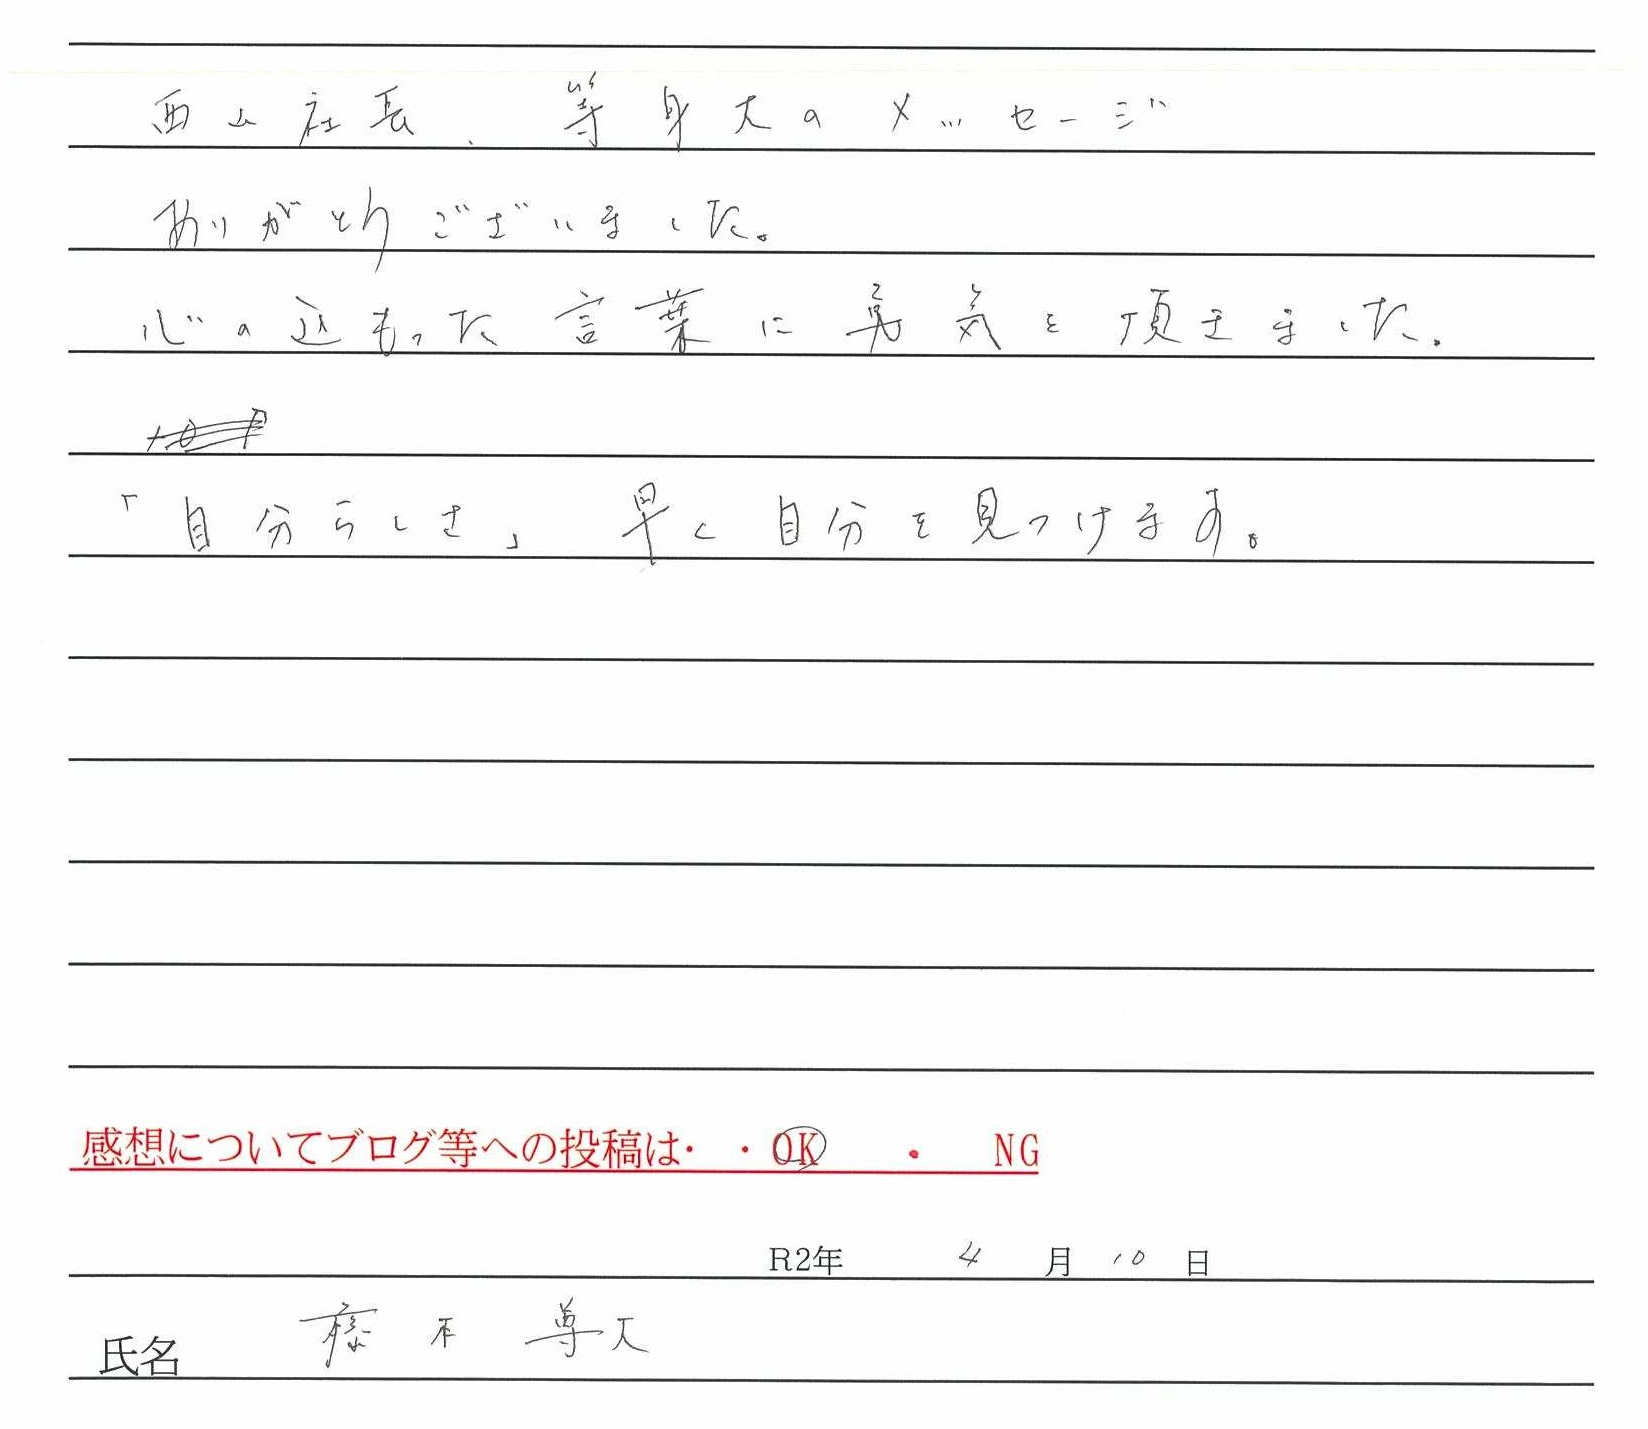 西山社長、等身大のメッセージ
ありがとうございました。
心の込もった言葉に勇気を頂きました。
「自分らしさ」早く自分を見つけます。
感想についてブログ等への投稿は・・OK ・ NG
R2年 4月10日
氏名 藤本 尊大